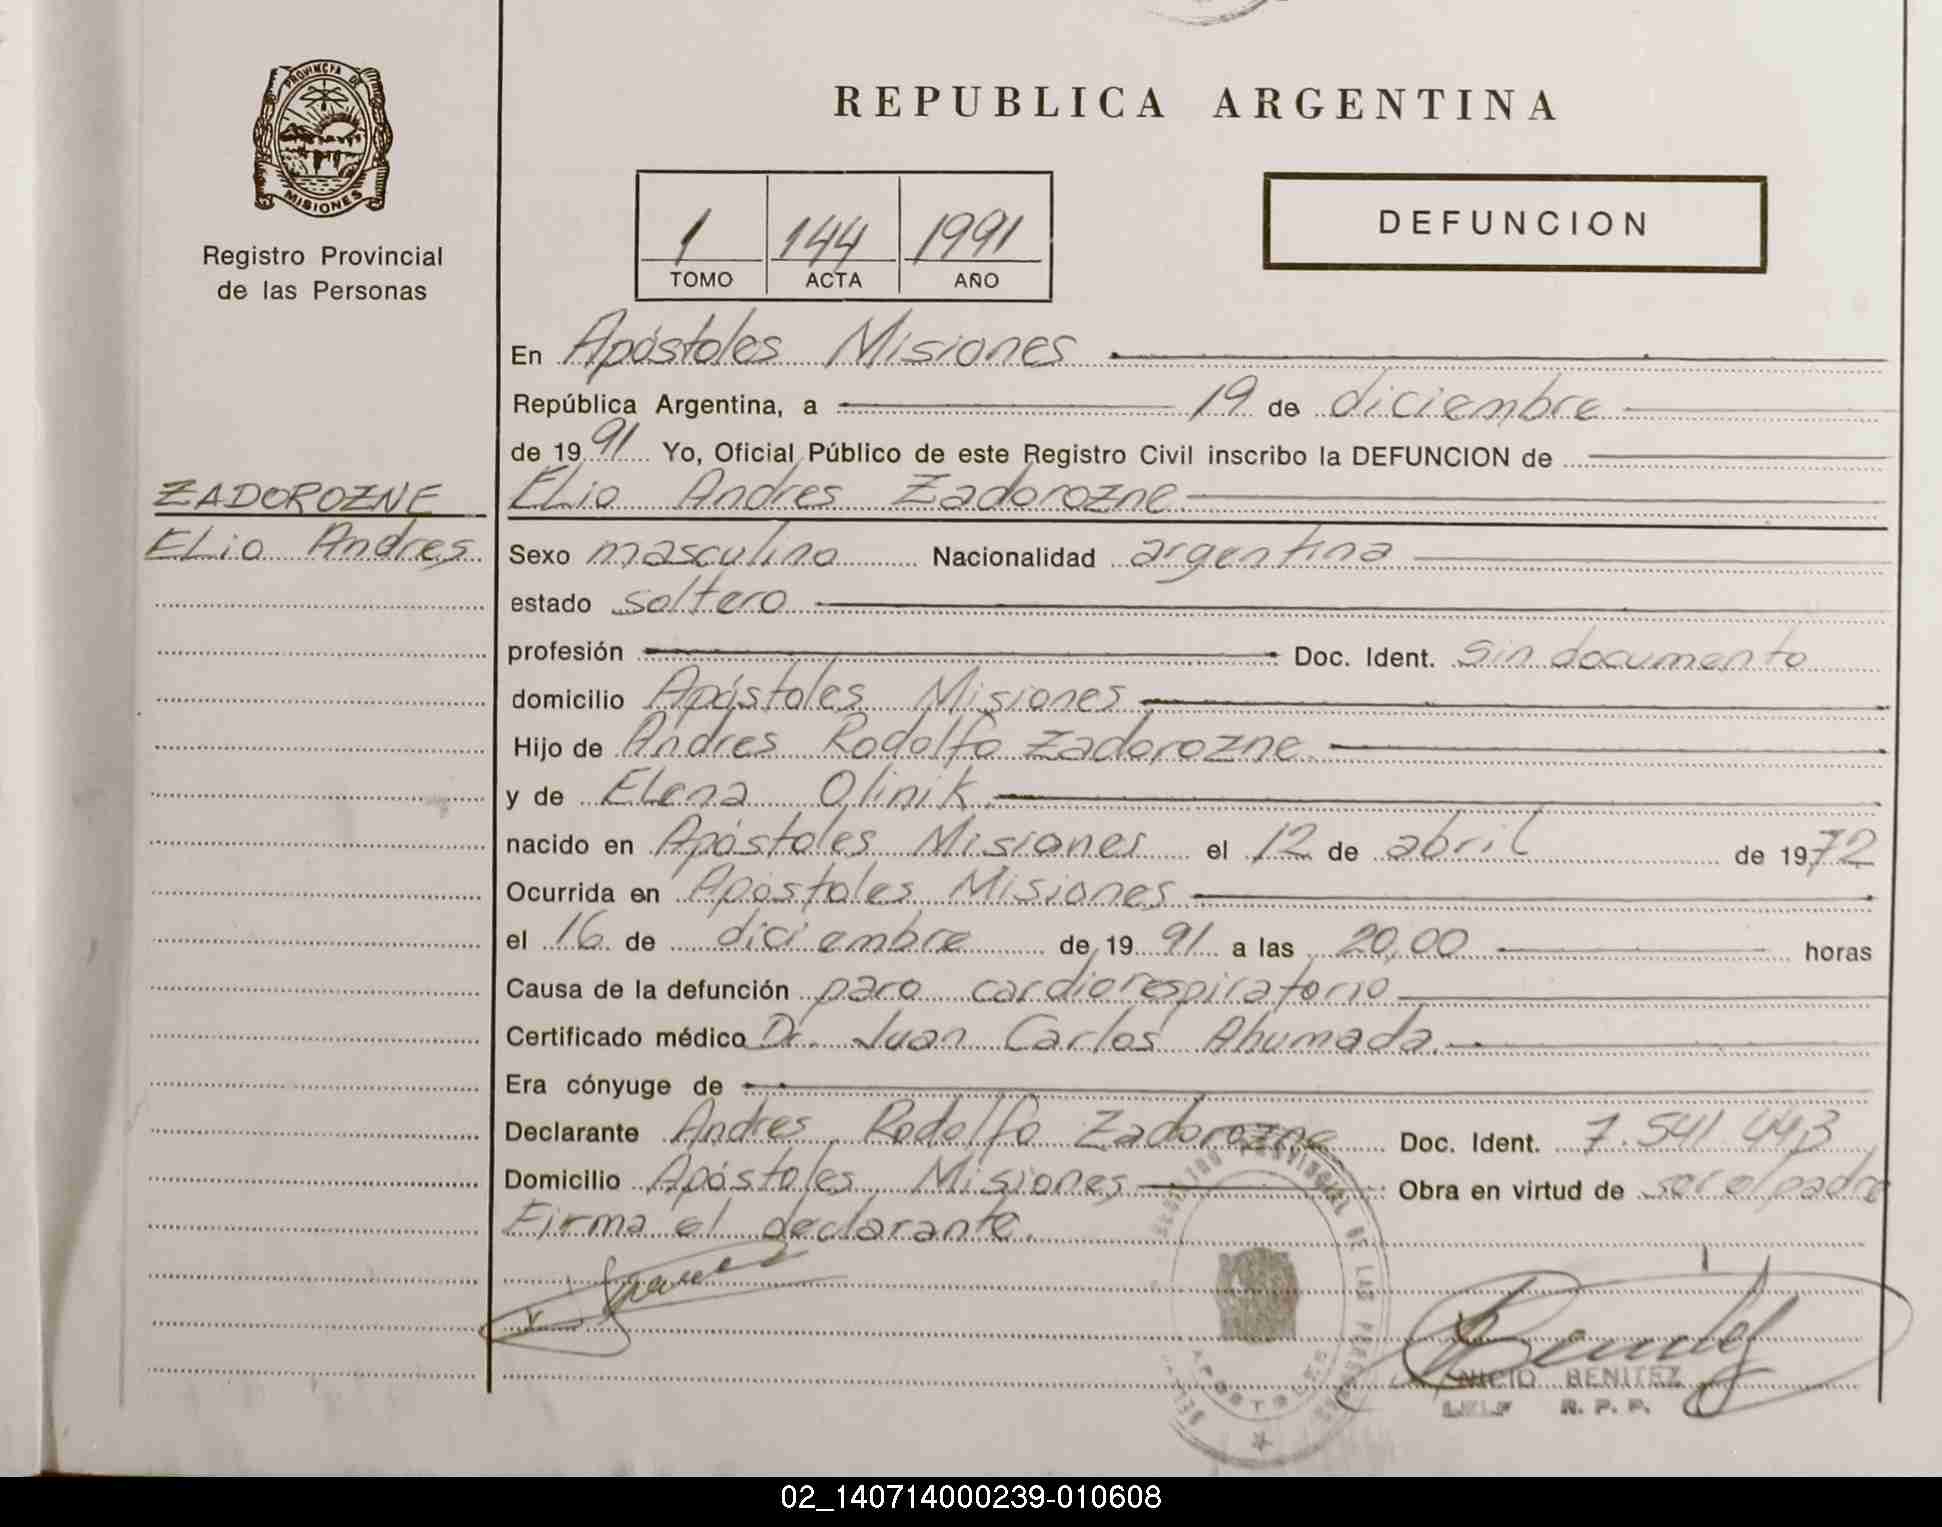 PROVINCIA DE
MISIONES
Registro Provincial
de las Personas
REPUBLICA ARGENTINA
1 144 1991
TOMO ACTA AÑO
DEFUNCION
En Apóstoles Misiones
República Argentina, a 19 de diciembre
de 1991 Yo, Oficial Público de este Registro Civil inscribo la DEFUNCION de
ZADOROZNE
Elio Andres
Elio Andres Zadorozne
Sexo masculino Nacionalidad argentina
estado soltero
profesión Doc. Ident. Sin documento
domicilio Apóstoles Misiones
Hijo de Andres Rodolfo Zadorozne
y de Elena Olinik
nacido en Apóstoles Misiones el 12 de abril de 1972
Ocurrida en Apóstoles Misiones
el 16 de diciembre de 19 91 a las 20,00 horas
Causa de la defunción paro cardiorespiratorio
Certificado médico Dr. Juan Carlos Ahumada.
Era cónyuge de
Declarante Andres Rodolfo Zadorozne Doc. Ident. 7.541.443
Domicilio Apóstoles Misiones Obra en virtud de ser el padre
Firma el declarante.
REGISTRO PROVINCIAL DE LAS PERSONAS
APOSTOLES
BENITEZ
R. P. P.
02_140714000239-010608